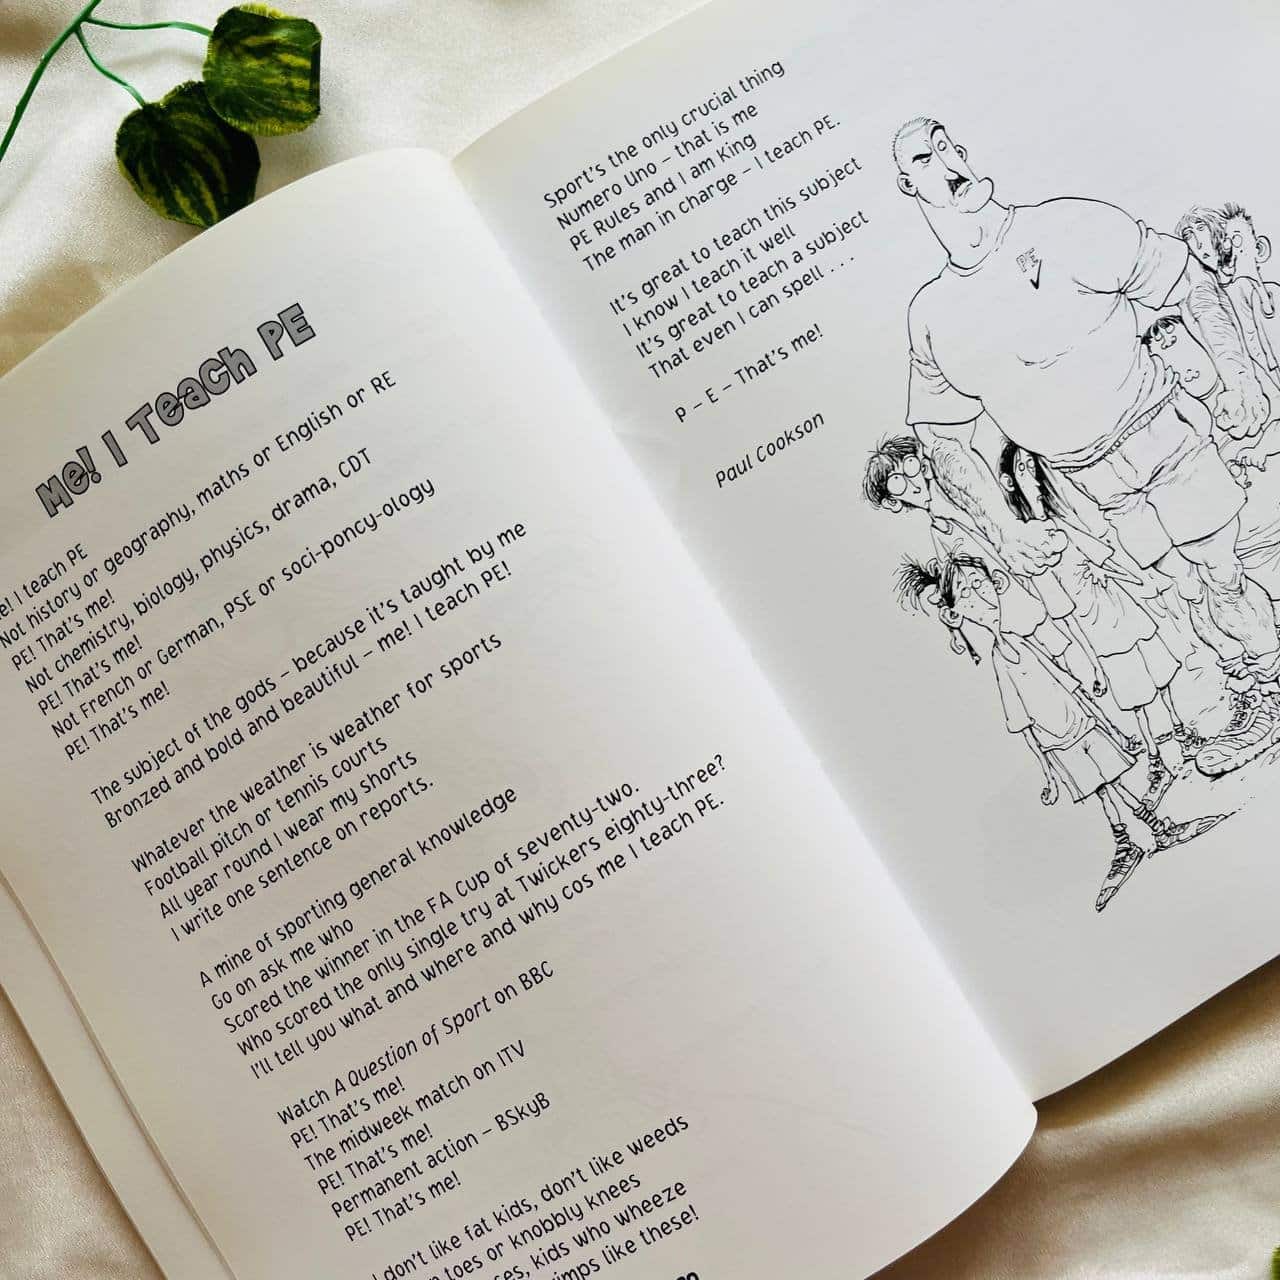 Me! I Teach PE
Me! I teach PE
Not history or geography, maths or English or RE
PE! That's me!
Not chemistry, biology, physics, drama, CDT
PE! That's me!
Not French or German, PSE or soci-poncy-ology
PE! That's me!
The subject of the gods – because it's taught by me
Bronzed and bold and beautiful – me! I teach PE!
Whatever the weather is weather for sports
Football pitch or tennis courts
All year round I wear my shorts
I write one sentence on reports.
A mine of sporting general knowledge
Go on ask me who
Scored the winner in the FA Cup of seventy-two.
Who scored the only single try at Twickers eighty-three?
I'll tell you what and where and why cos me I teach PE.
Watch A Question of Sport on BBC
PE! That's me!
The midweek match on ITV
PE! That's me!
Permanent action – BSkyB
PE! That's me!
I don't like fat kids, don't like weeds
toes or knobbly knees
kids who wheeze
like these!
Sport's the only crucial thing
Numero Uno – that is me
PE Rules and I am King
The man in charge – I teach PE.
It's great to teach this subject
I know I teach it well
It's great to teach a subject
That even I can spell . . .
P – E – That's me!
Paul Cookson
PE